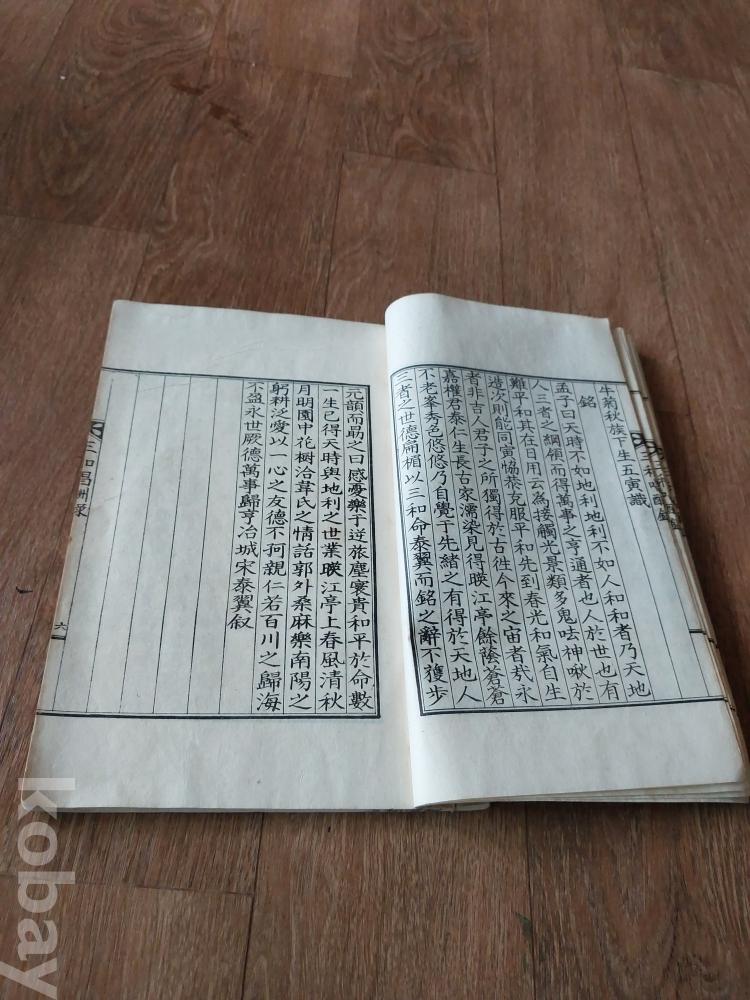 牛菊秋族下生五寅識
銘
孟子曰天時不如地利地利不如人和和者乃天地
人三者之綱領而得萬事之亨通者也人於世也有
難平和其在日用云為接觸光景類多鬼呿神啾於
造次則能同寅恊恭克服平和先到春光和氣自生
者非吉人君子之所獨得於古徃今來之宙者㢤永
嘉權君泰仁生長古家濡染見得暎江亭餘蔭蒼蒼
不老峯秀色悠悠乃自覺于先緒之有得於天地人
三者之世德扁楣以三和命泰翼而銘之辭不獲步
元韻而勗之曰感憂樂于逆旅塵寰貴和平於命數
一生已得天時與地利之世業暎江亭上春風清秋
月明園中花樹洽韋氏之情話郭外桑麻樂南陽之
躬耕泛愛以一心之友德不孤親仁若百川之歸海
不盈永世厥德萬事歸亨冶城宋泰翼叙
三和昌酬錄
六
kobay